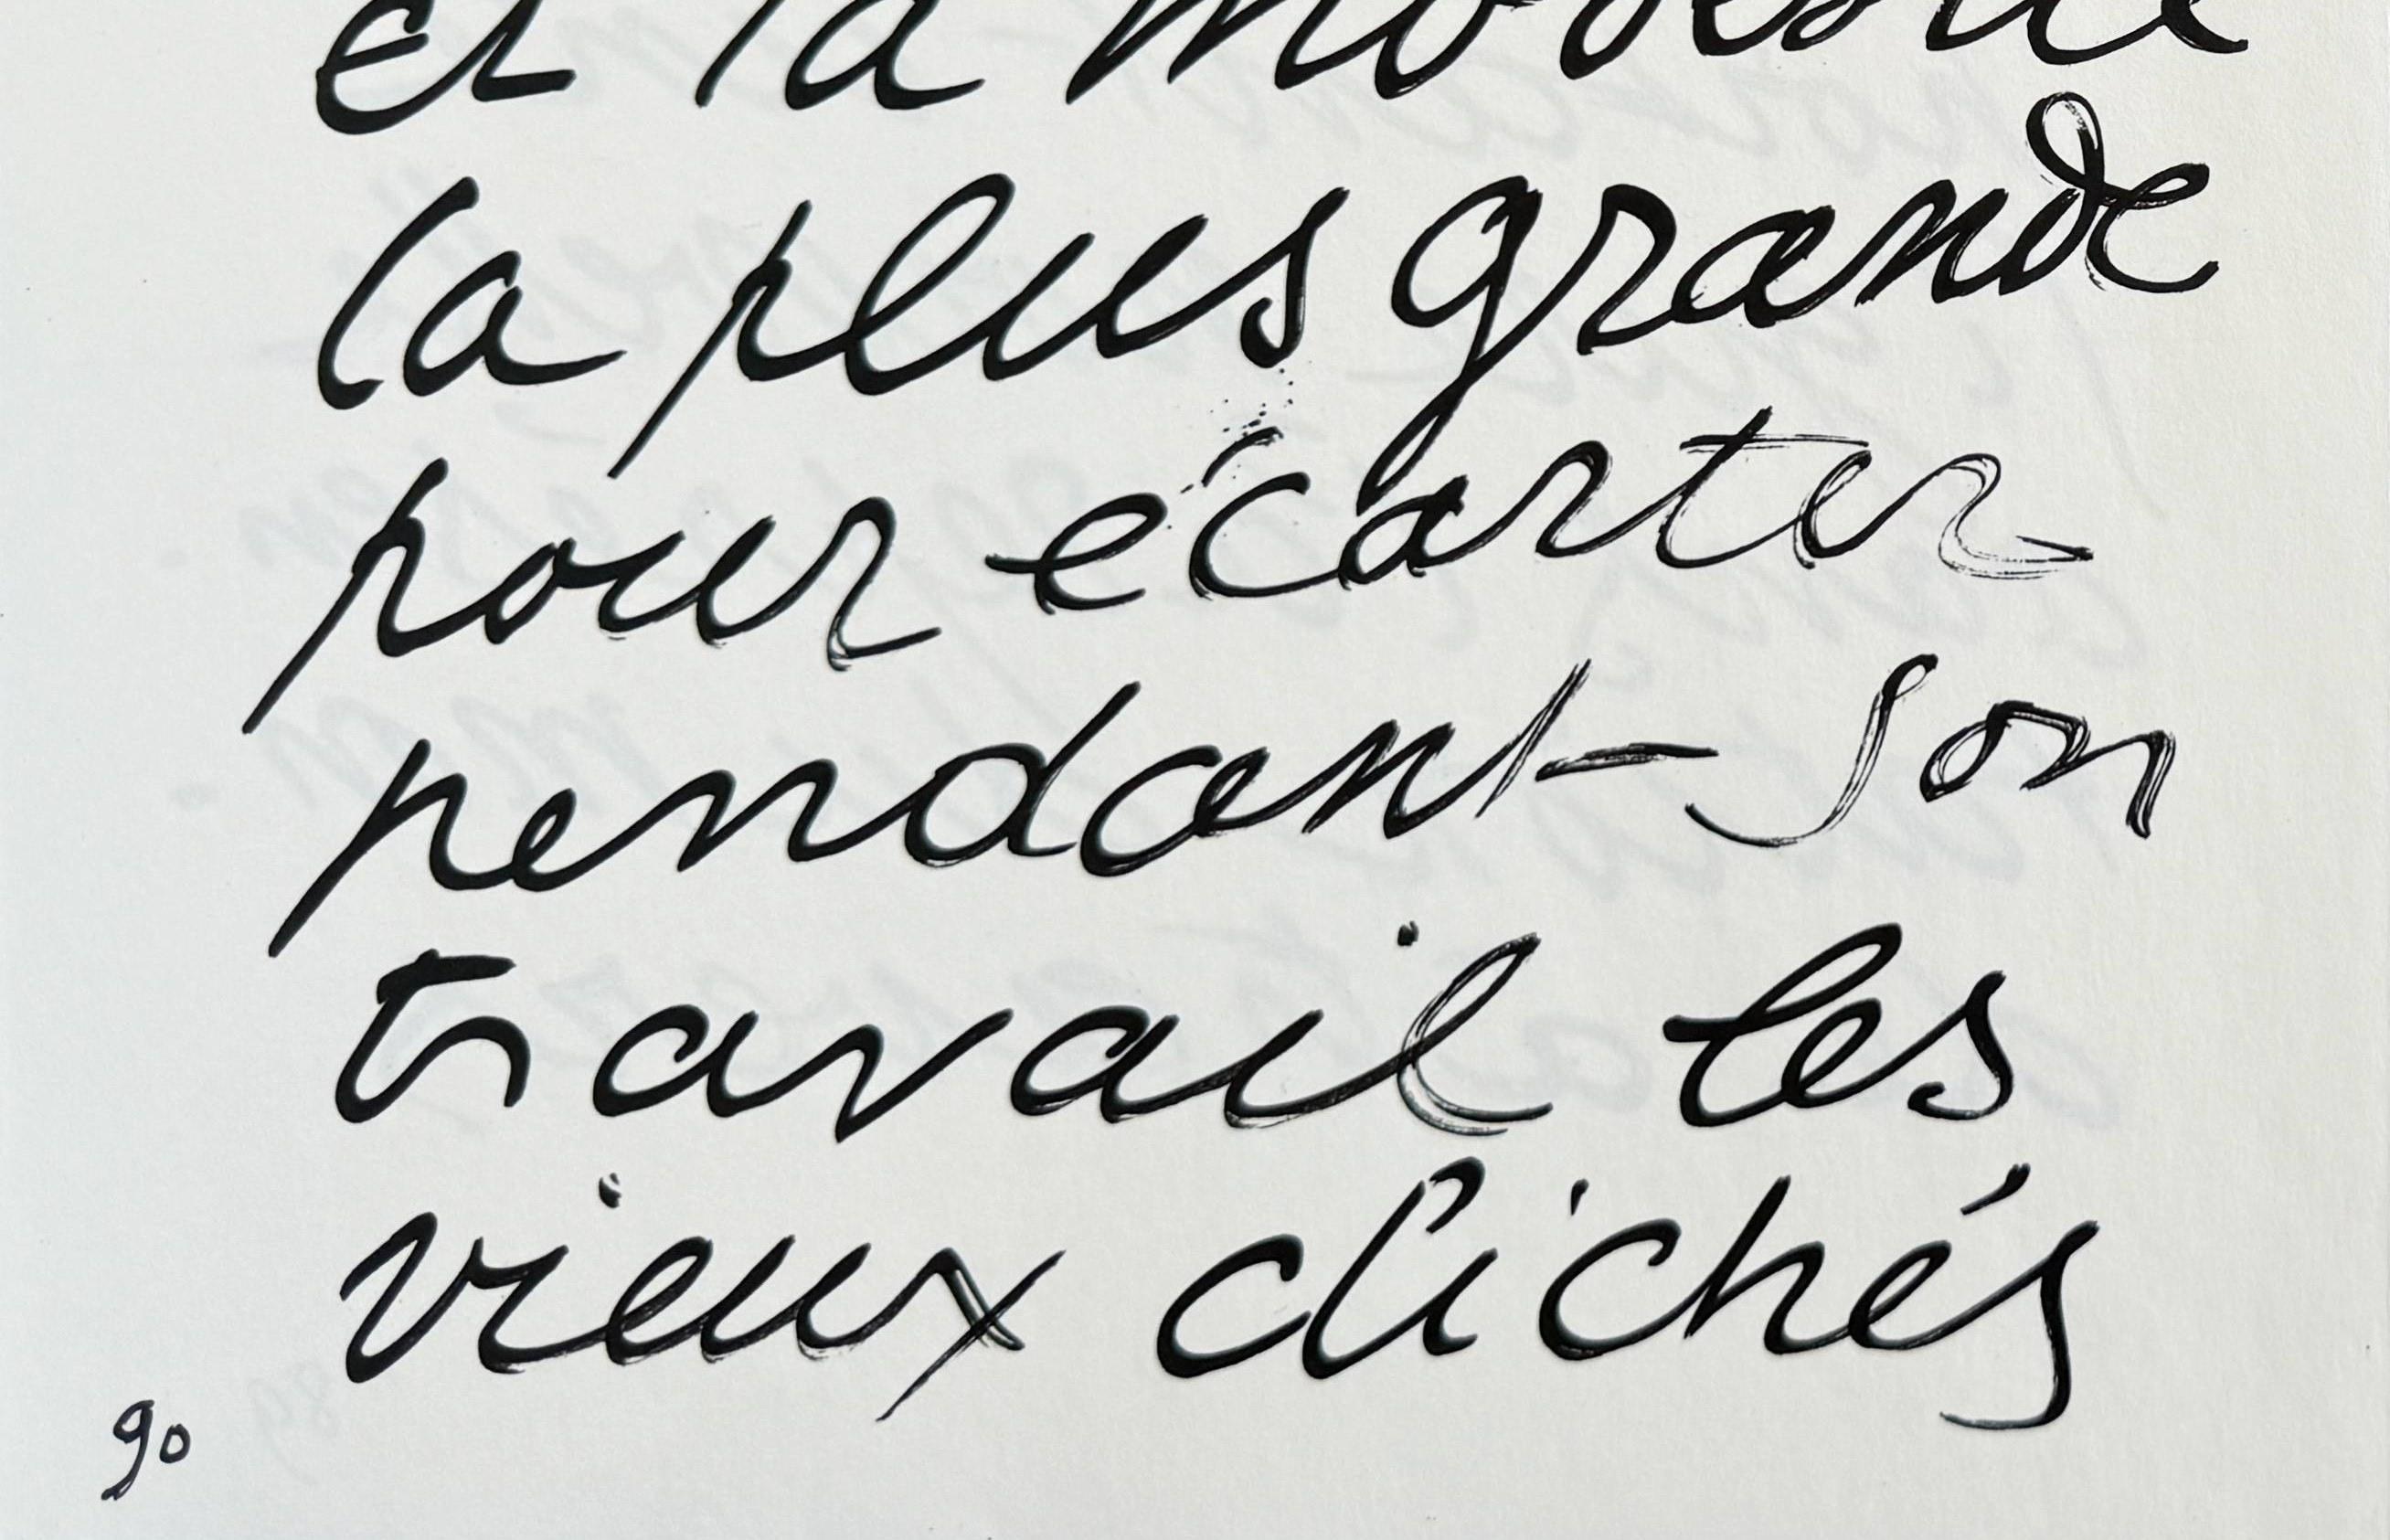 et la modestie
la plus grande
pour écarter
pendant son
travail les
vieux clichés
90